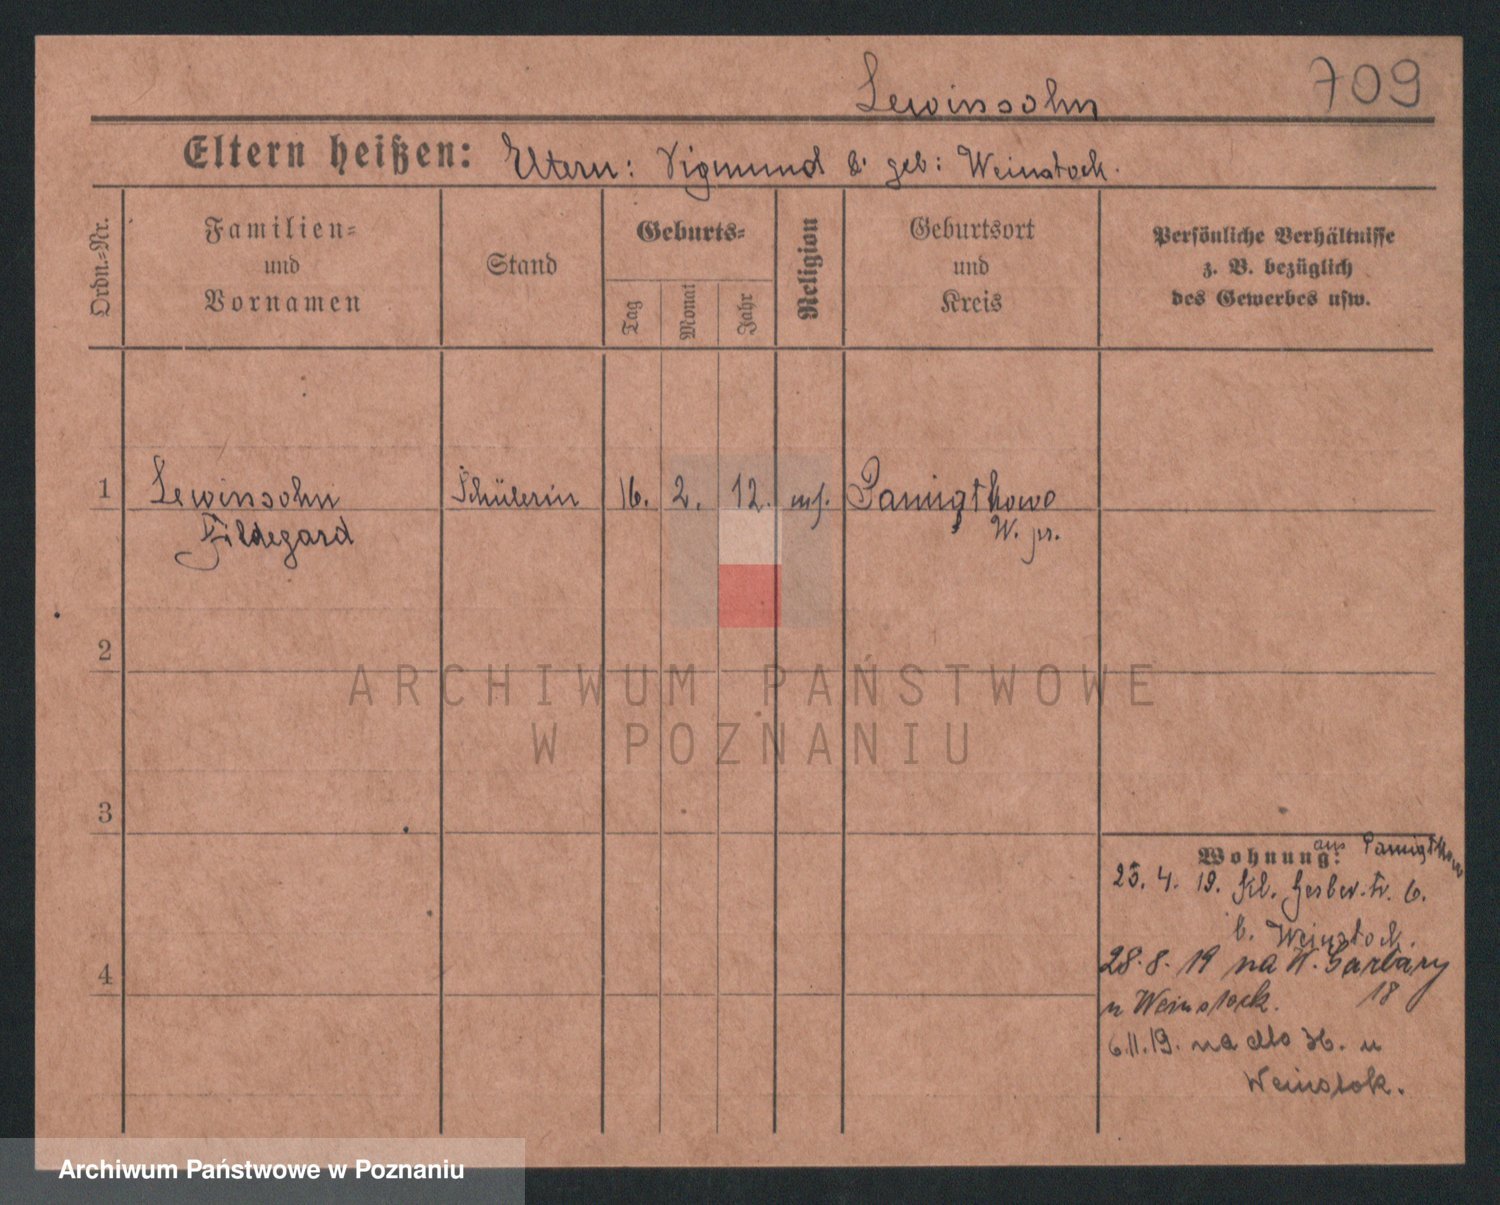 709
Lewinsohn
Eltern heißen: Eltern: Sigmund & geb: Weinstock.
Ordn.-Nr.
Familien-
und
Vornamen
Stand
Geburts-
Tag
Monat
Jahr
Religion
Geburtsort
und
Kreis
Persönliche Verhältnisse
z. B. bezüglich
des Gewerbes usw.
1 Lewinsohn Schülerin 16. 2. 12. mos. Pamiątkowo
Hildegard W. pr.
2
3
4
Wohnung: aus Pamiątkowo
25. 4. 19. Kl. Gerber-str. 6.
b. Weinstock.
28.8.19 na W. Garbary
18
u Weinstock.
6.11.19. na dto 36. u
Weinstok.
ARCHIWUM PAŃSTWOWE
W POZNANIU
Archiwum Państwowe w Poznaniu